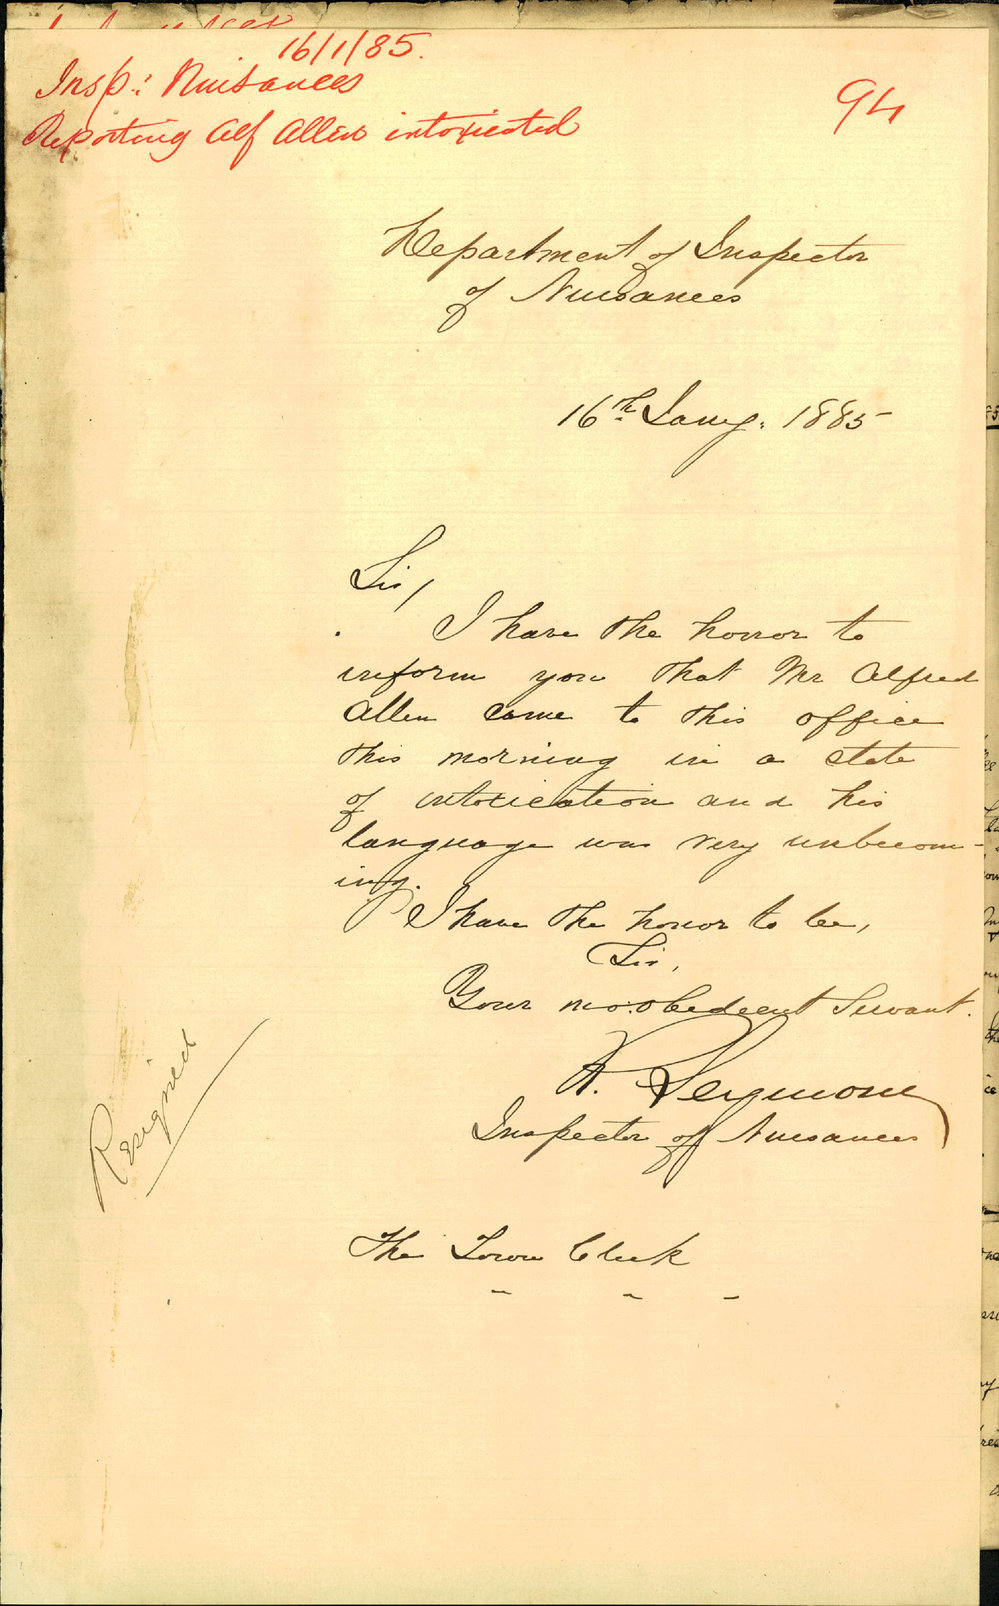 16/1/85.
Insp: Nuisances
Reporting Alf Allen intoxicated
94
Department of Inspector
of Nuisances
16th Jany: 1885
Sir,
I have the honor to
inform you that Mr Alfred
Allen came to this office
this morning in a state
of intoxication and his
language was very unbecom-
ing.
I have the honor to be,
Sir,
Your mo: obedient Servant.
Inspector of Nuisances
Resigned
The Town Clerk